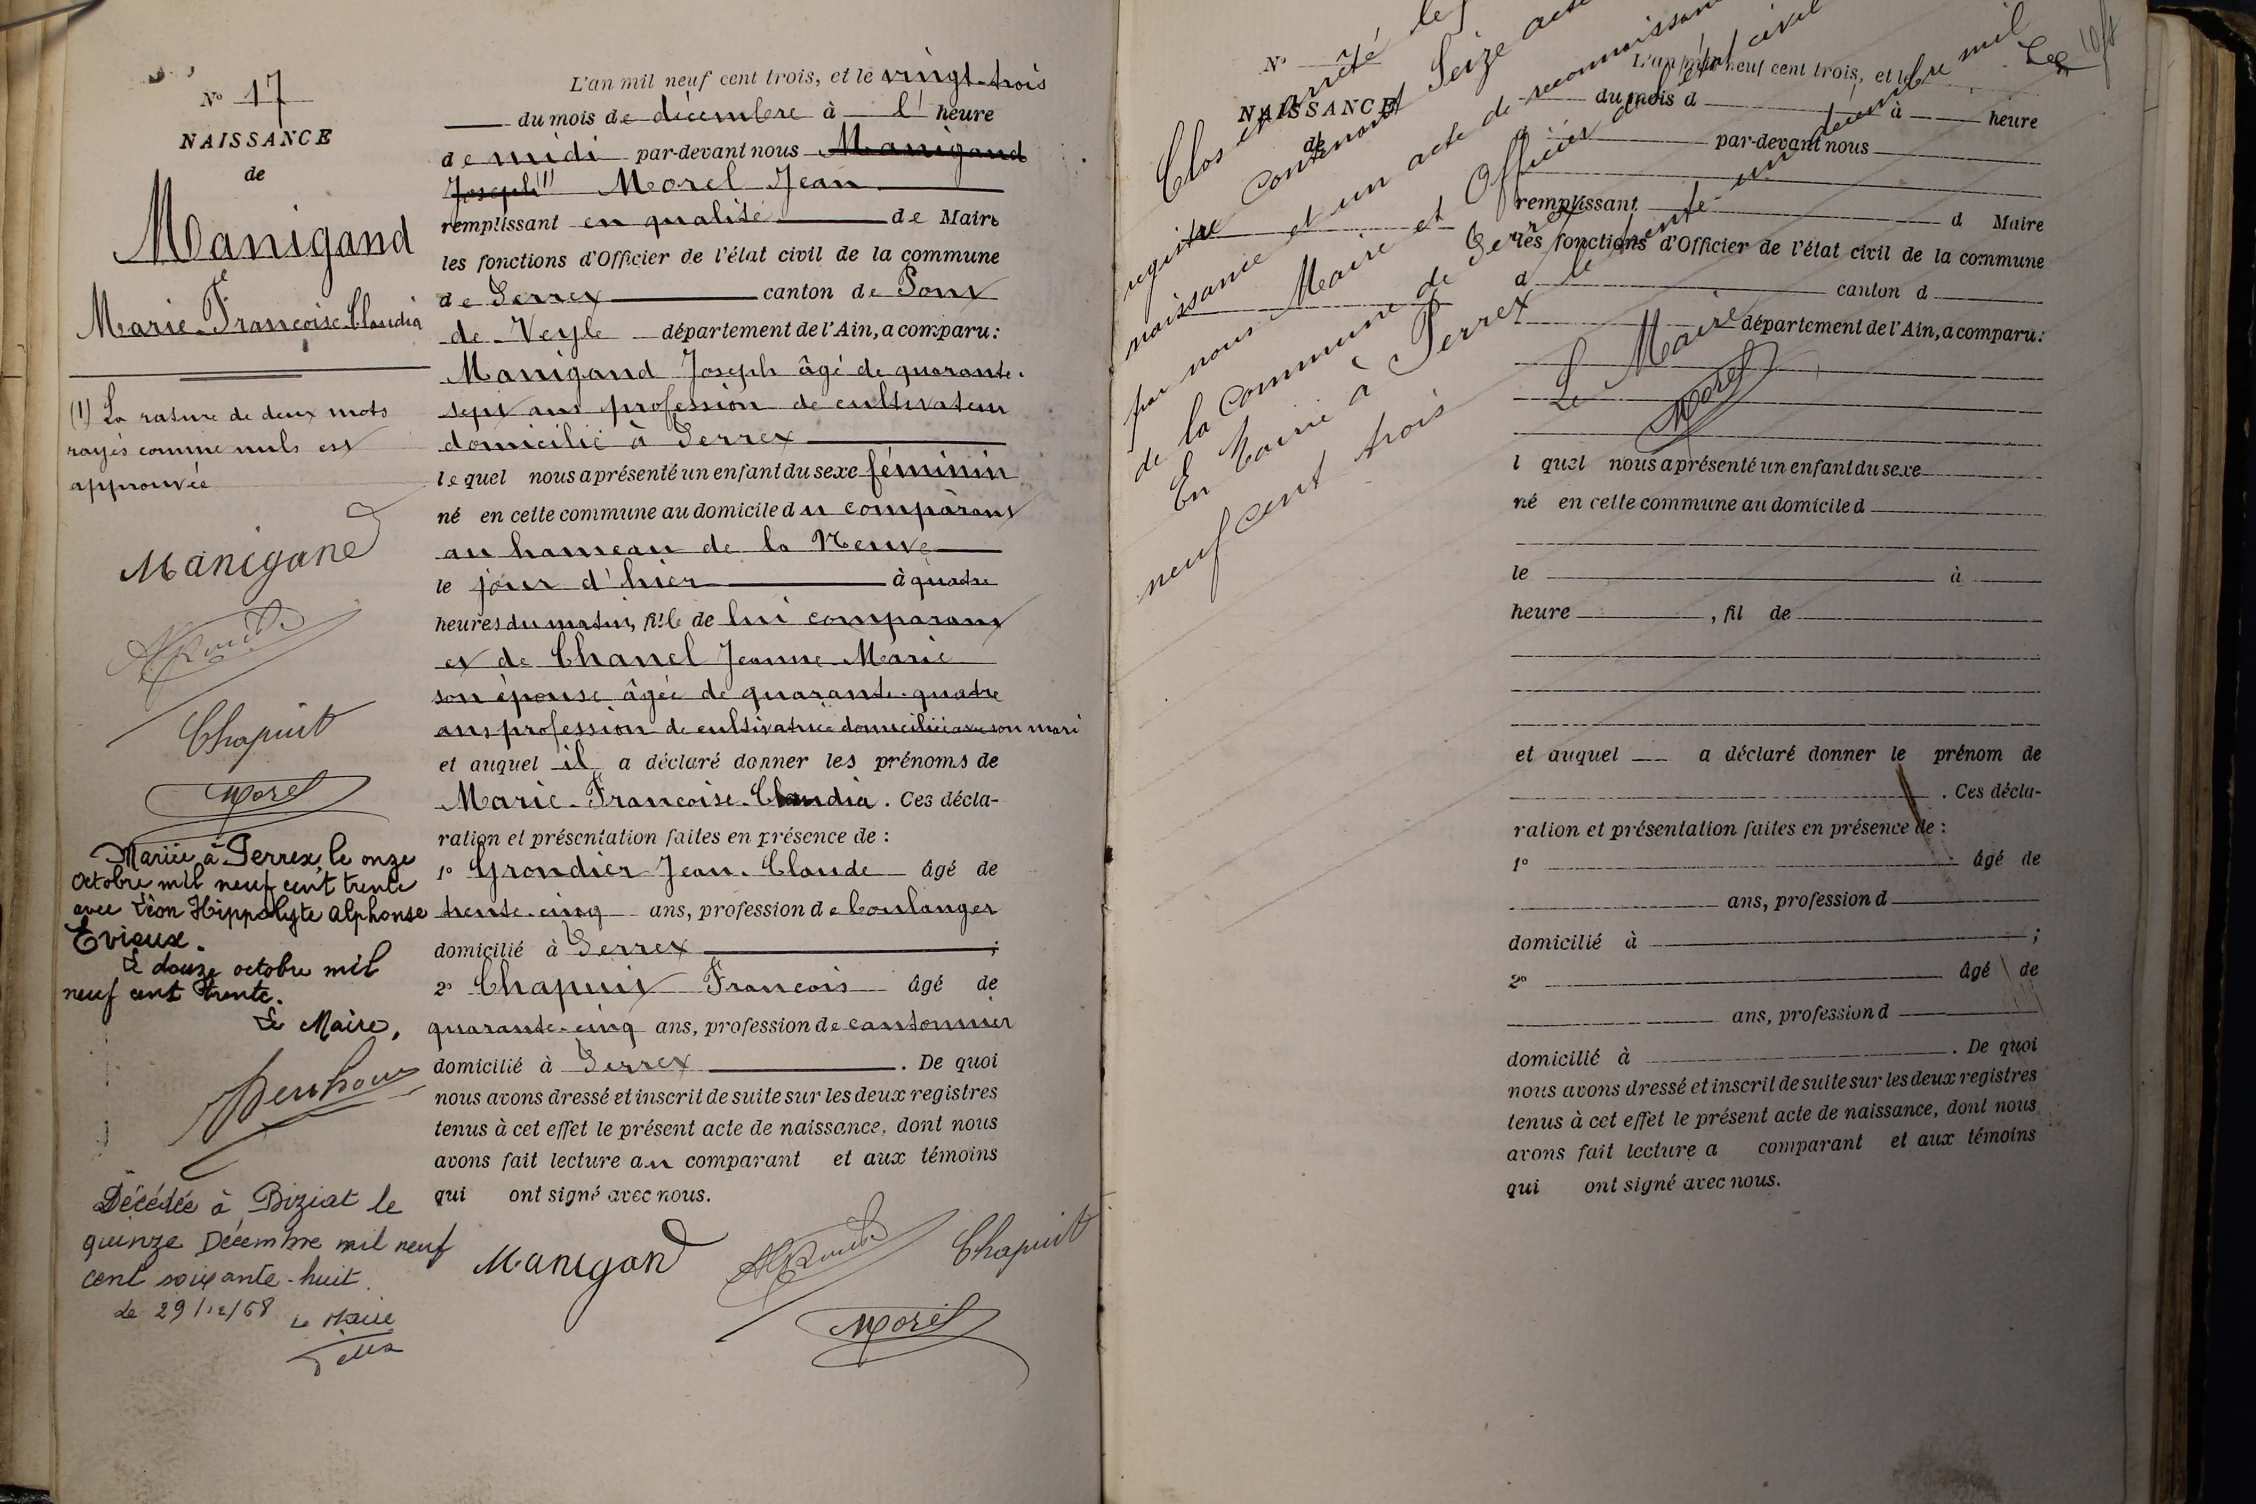 N° 17
NAISSANCE
de
Manigand
Marie-Françoise-Claudia
(1) La rature de deux mots
rayés comme nuls est
approuvée
Manigand
Chapuit
Morel
Mariée à Perrex le onze
Octobre mil neuf cent trente
avec Léon Hippolyte Alphonse
Evieux.
Le douze octobre mil
neuf cent trente.
Le Maire,
Décédée à Biziat le
quinze Décembre mil neuf
cent soixante-huit.
Le 29/12/68 Le Maire
L'an mil neuf cent trois, et le vingt-trois
du mois de décembre à l' heure
de midi par-devant nous Manigand
Joseph (1) Morel Jean
remplissant en qualité de Maire
les fonctions d'Officier de l'état civil de la commune
de Perrex canton de Pont
de Veyle département de l'Ain, a comparu:
Manigand Joseph âgé de quarante-
sept ans profession de cultivateur
domicilié à Perrex
lequel nous a présenté un enfant du sexe féminin
né en cette commune au domicile du comparant
au hameau de la Neuve
le jour d'hier à quatre
heures du matin, fille de lui comparant
et de Chanel Jeanne-Marie
son épouse âgée de quarante-quatre
ans profession de cultivatrice domiciliée avec son mari
et auquel il a déclaré donner les prénoms de
Marie-Françoise-Claudia. Ces décla-
ration et présentation faites en présence de :
1° Grondier Jean-Claude âgé de
trente-cinq ans, profession de boulanger
domicilié à Perrex ;
2° Chapuit François âgé de
quarante-cinq ans, profession de cantonnier
domicilié à Perrex . De quoi
nous avons dressé et inscrit de suite sur les deux registres
tenus à cet effet le présent acte de naissance, dont nous
avons fait lecture au comparant et aux témoins
qui ont signé avec nous.
Manigand Chapuit
Morel
Clos et arrêté le
registre contenant Seize actes
naissance et un acte de reconnaissance
par nous Maire et Officier de l'état civil
de la Commune de Perrex
En Mairie à Perrex le trente-un décembre mil
neuf cent trois
Le Maire
Morel
N°
NAISSANCE
de
L'an mil neuf cent trois, et le
du mois d à heure
d par-devant nous
remplissant d Maire
les fonctions d'Officier de l'état civil de la commune
d canton d
département de l'Ain, a comparu:
l quel nous a présenté un enfant du sexe
né en cette commune au domicile d
le à
heure , fil de
et auquel a déclaré donner le prénom de
. Ces décla-
ration et présentation faites en présence de :
1° âgé de
ans, profession d
domicilié à ;
2° âgé de
ans, profession d
domicilié à . De quoi
nous avons dressé et inscrit de suite sur les deux registres
tenus à cet effet le présent acte de naissance, dont nous
avons fait lecture a comparant et aux témoins
qui ont signé avec nous.